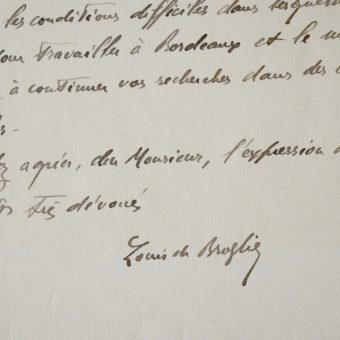 les conditions difficiles dans lesquel
our travailler à Bordeaux et le m
à continuer vos recherches dans des c
s.
ez agréer, cher Monsieur, l'expression d
ts très dévoués
Louis de Broglie